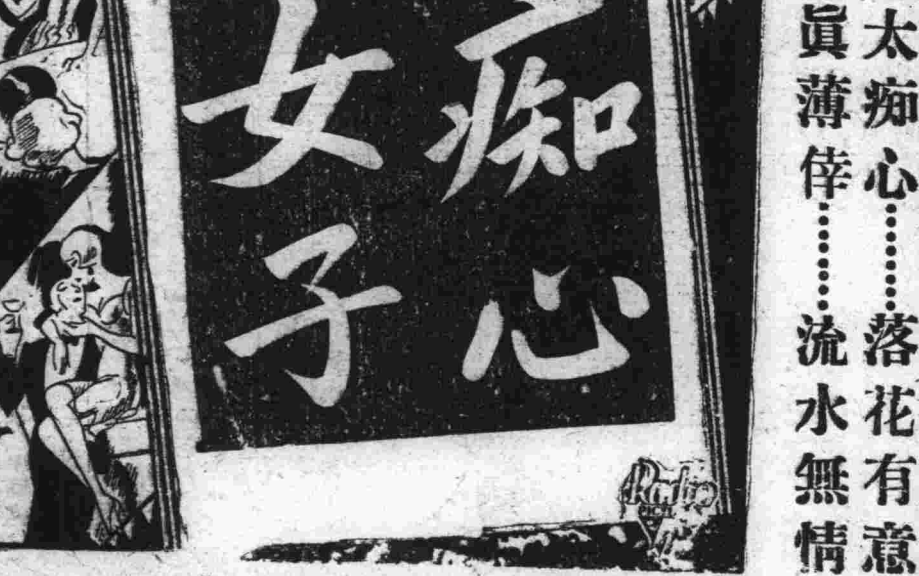 太痴心………落花有意
眞薄倖………流水無情
痴心
女子
Radio